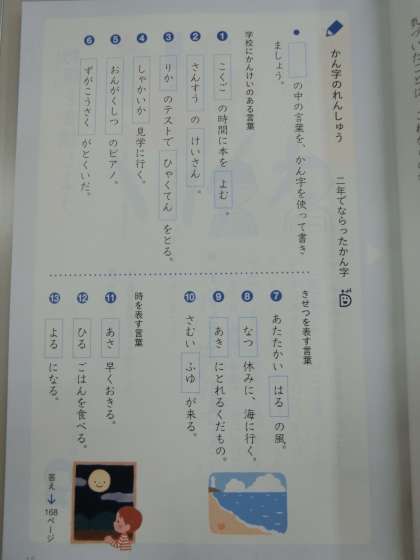 かん字のれんしゅう
二年でならったかん字
● □の中の言葉を、かん字を使って書き
ましょう。
学校にかんけいのある言葉
❶ こくご の時間に本を よむ 。
❷ さんすう の けいさん 。
❸ りか のテストで ひゃくてん をとる。
❹ しゃかいか 見学に行く。
❺ おんがくしつ のピアノ。
❻ ずがこうさく がとくいだ。
きせつを表す言葉
❼ あたたかい はる の風。
❽ なつ 休みに、海に行く。
❾ あき にとれるくだもの。
❿ さむい ふゆ が来る。
時を表す言葉
⓫ あさ 早くおきる。
⓬ ひる ごはんを食べる。
⓭ よる になる。
答え→168ページ